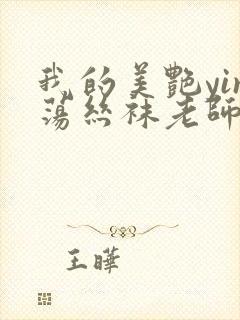 我的美艷yin
蕩絲袜老師
王曄